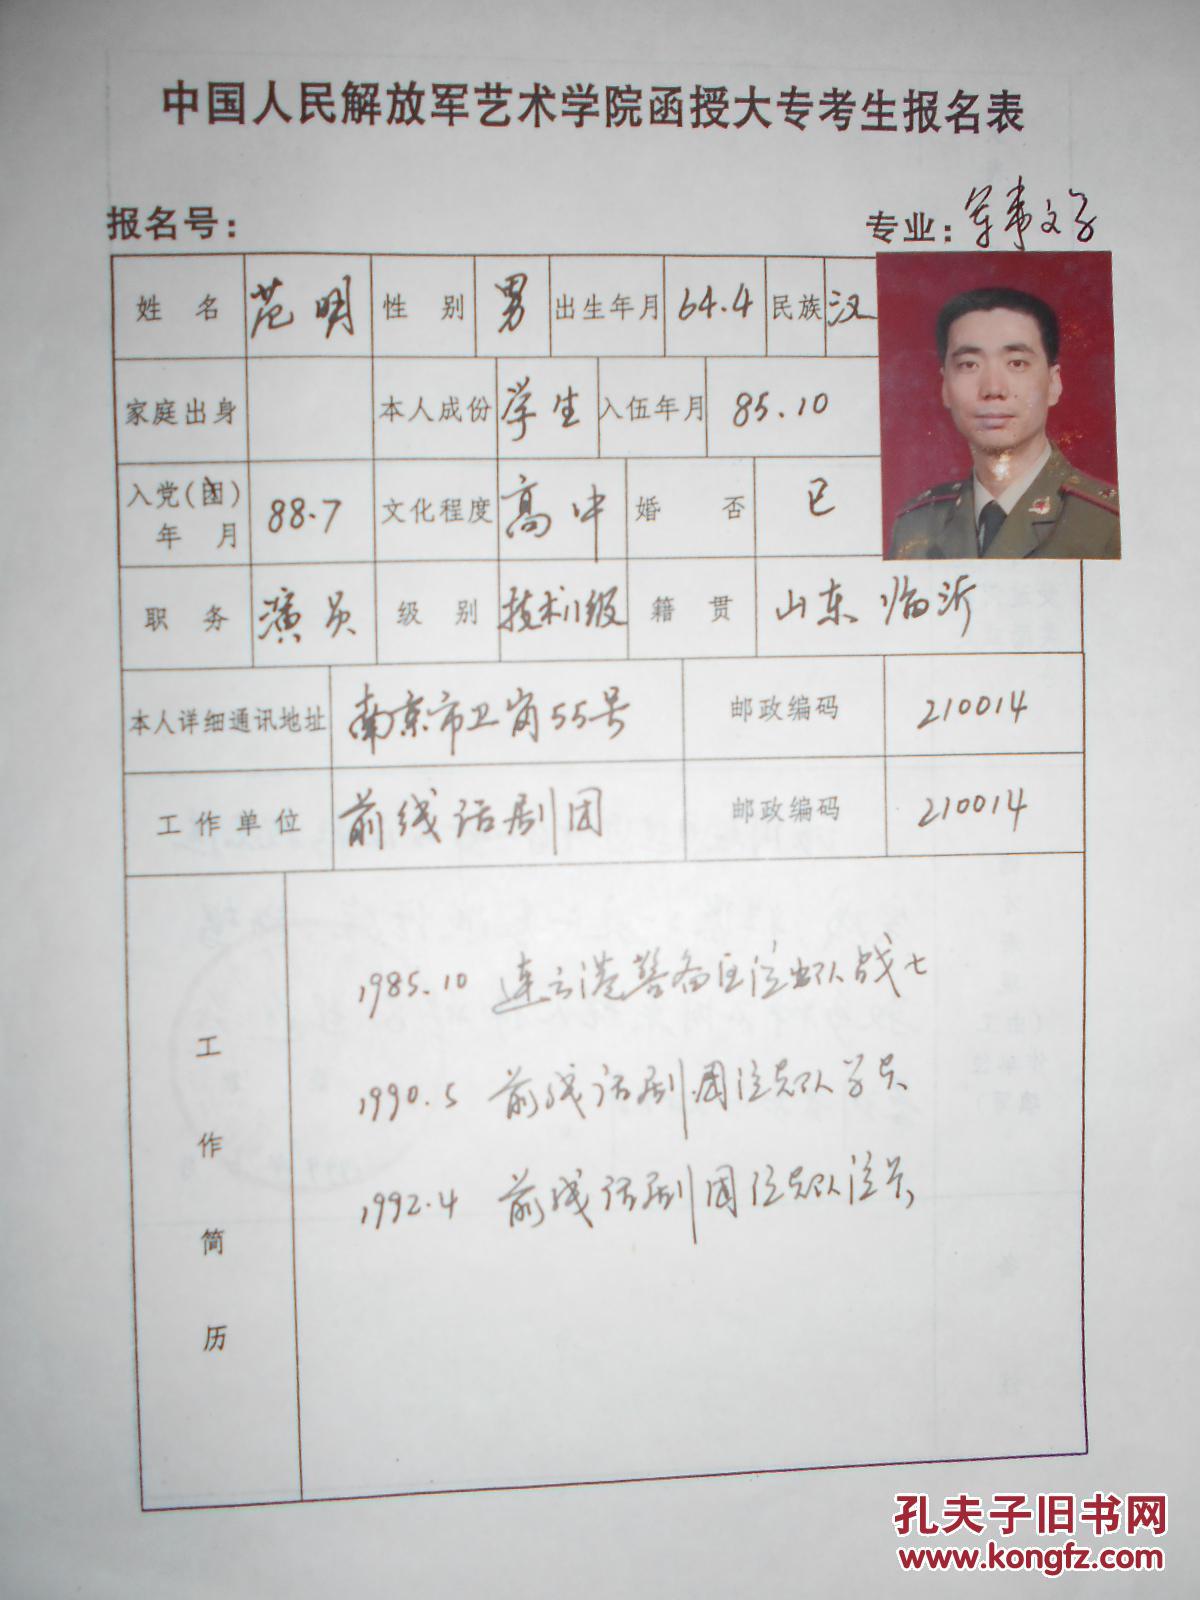 中国人民解放军艺术学院函授大专考生报名表
报名号: 专业: 军事文学
姓名 范明 性别 男 出生年月 64.4 民族 汉
家庭出身 本人成份 学生 入伍年月 85.10
入党(团)年月 88.7 文化程度 高中 婚否 已
职务 演员 级别 技术11级 籍贯 山东临沂
本人详细通讯地址 南京市卫岗55号 邮政编码 210014
工作单位 前线话剧团 邮政编码 210014
工作简历
1985.10 连云港警备区演出队战士
1990.5 前线话剧团演员队学员
1992.4 前线话剧团演员队演员
孔夫子旧书网
www.kongfz.com